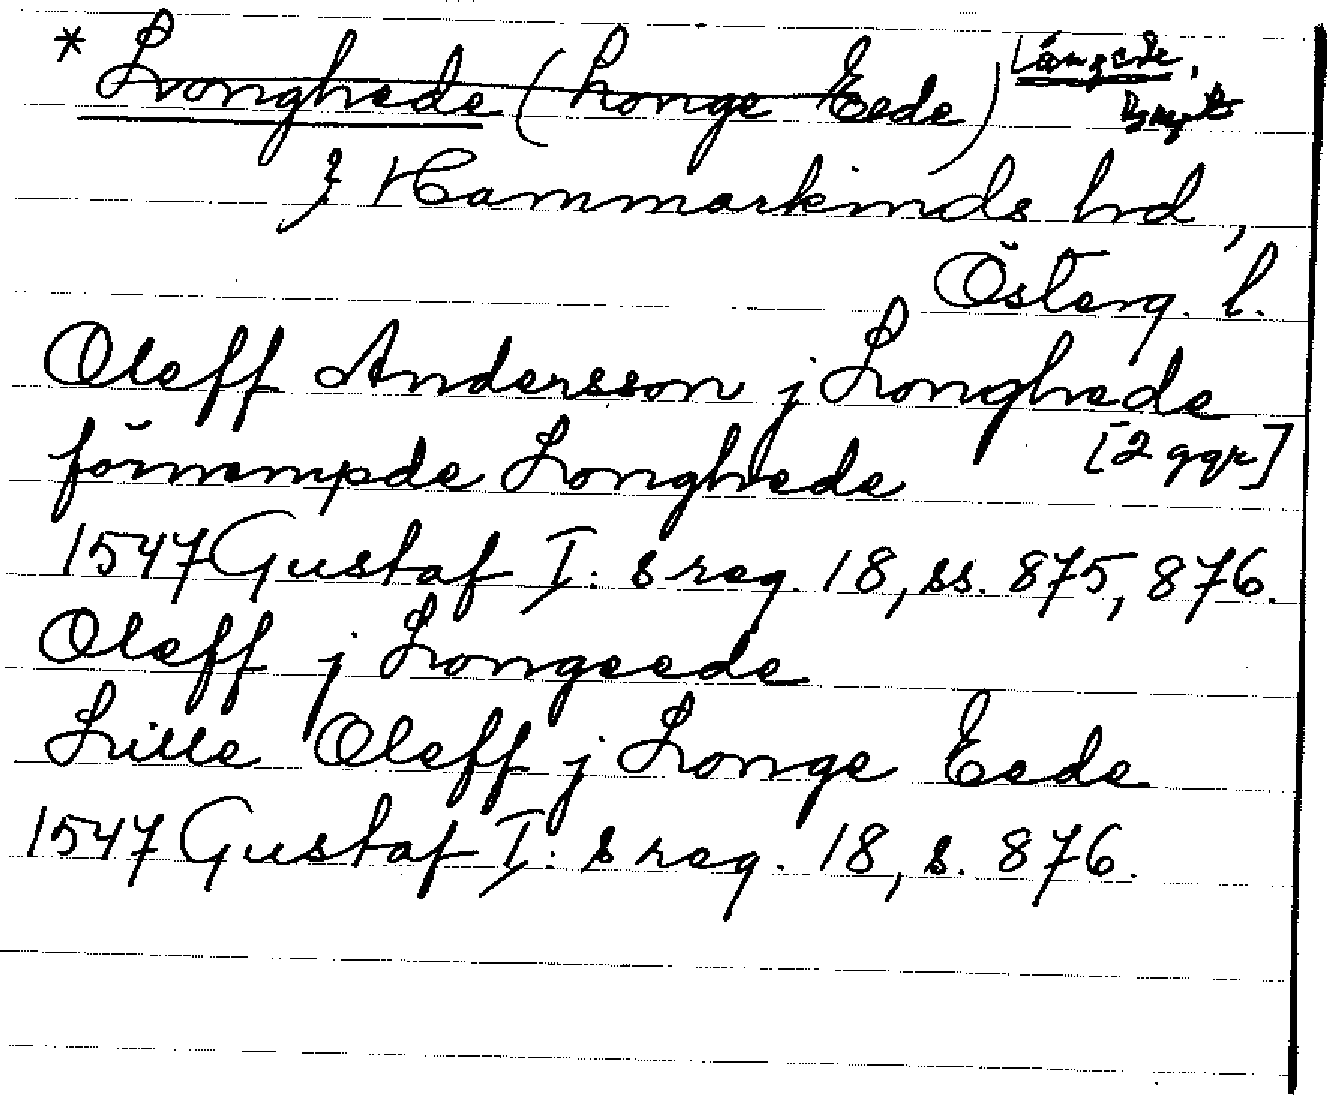 * Longhede (Longe Eede) Längede,
} Hammarkinds hd,
Österg. l.
Oleff Andersson j Longhede
förnempde Longhede [2 ggr]
1547 Gustaf I:s reg. 18, ss. 875, 876.
Oleff j Longeede
Lille Oleff j Longe Eede
1547 Gustaf I:s reg. 18, s. 876.